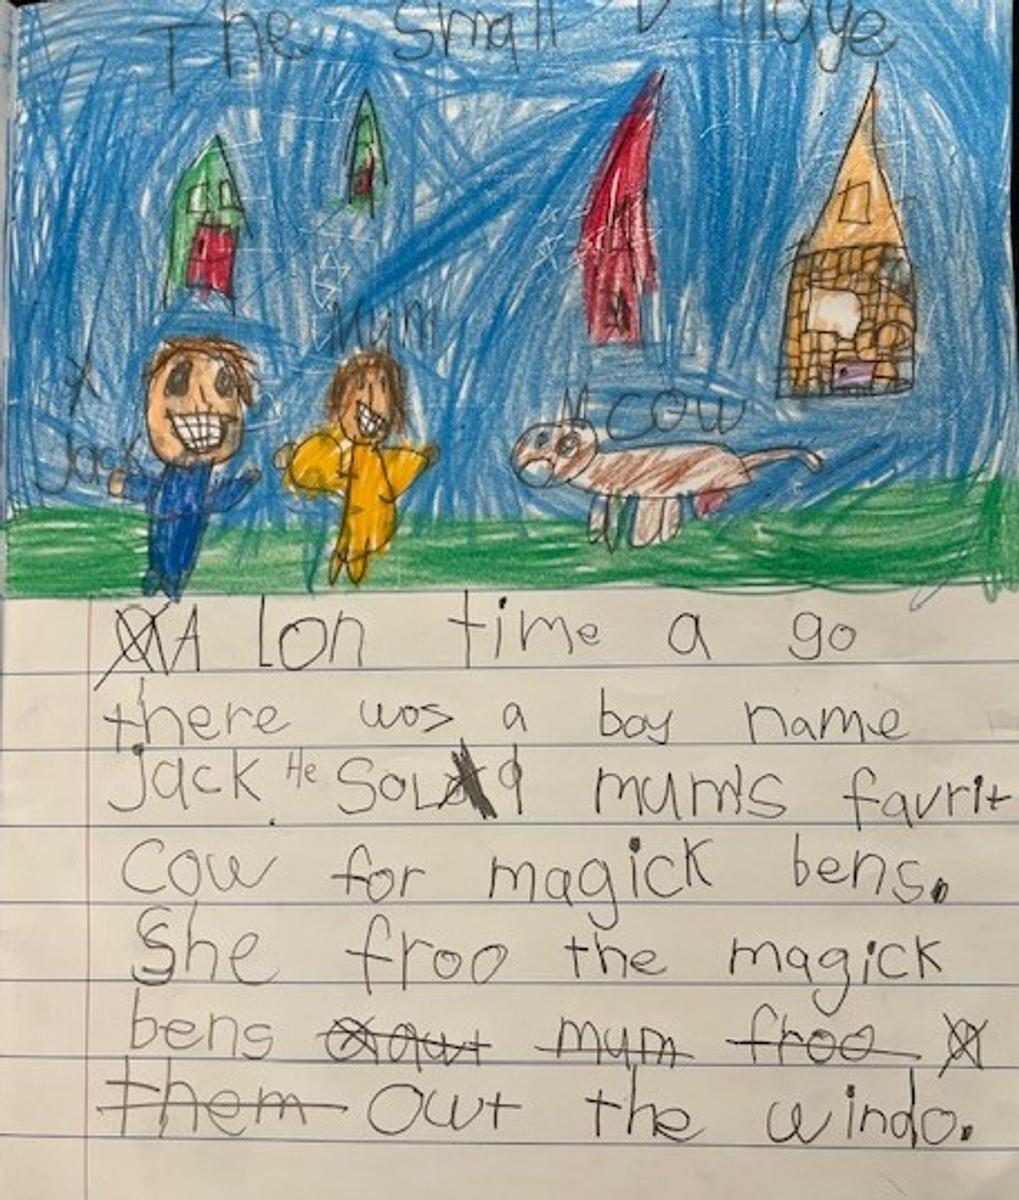 The Small Village
Mum
Jack
cow
A lon time a go
there wos a boy name
Jack. He Sold mum's favrit
cow for magick bens.
She froo the magick
bens mum froo
them Owt the windo.